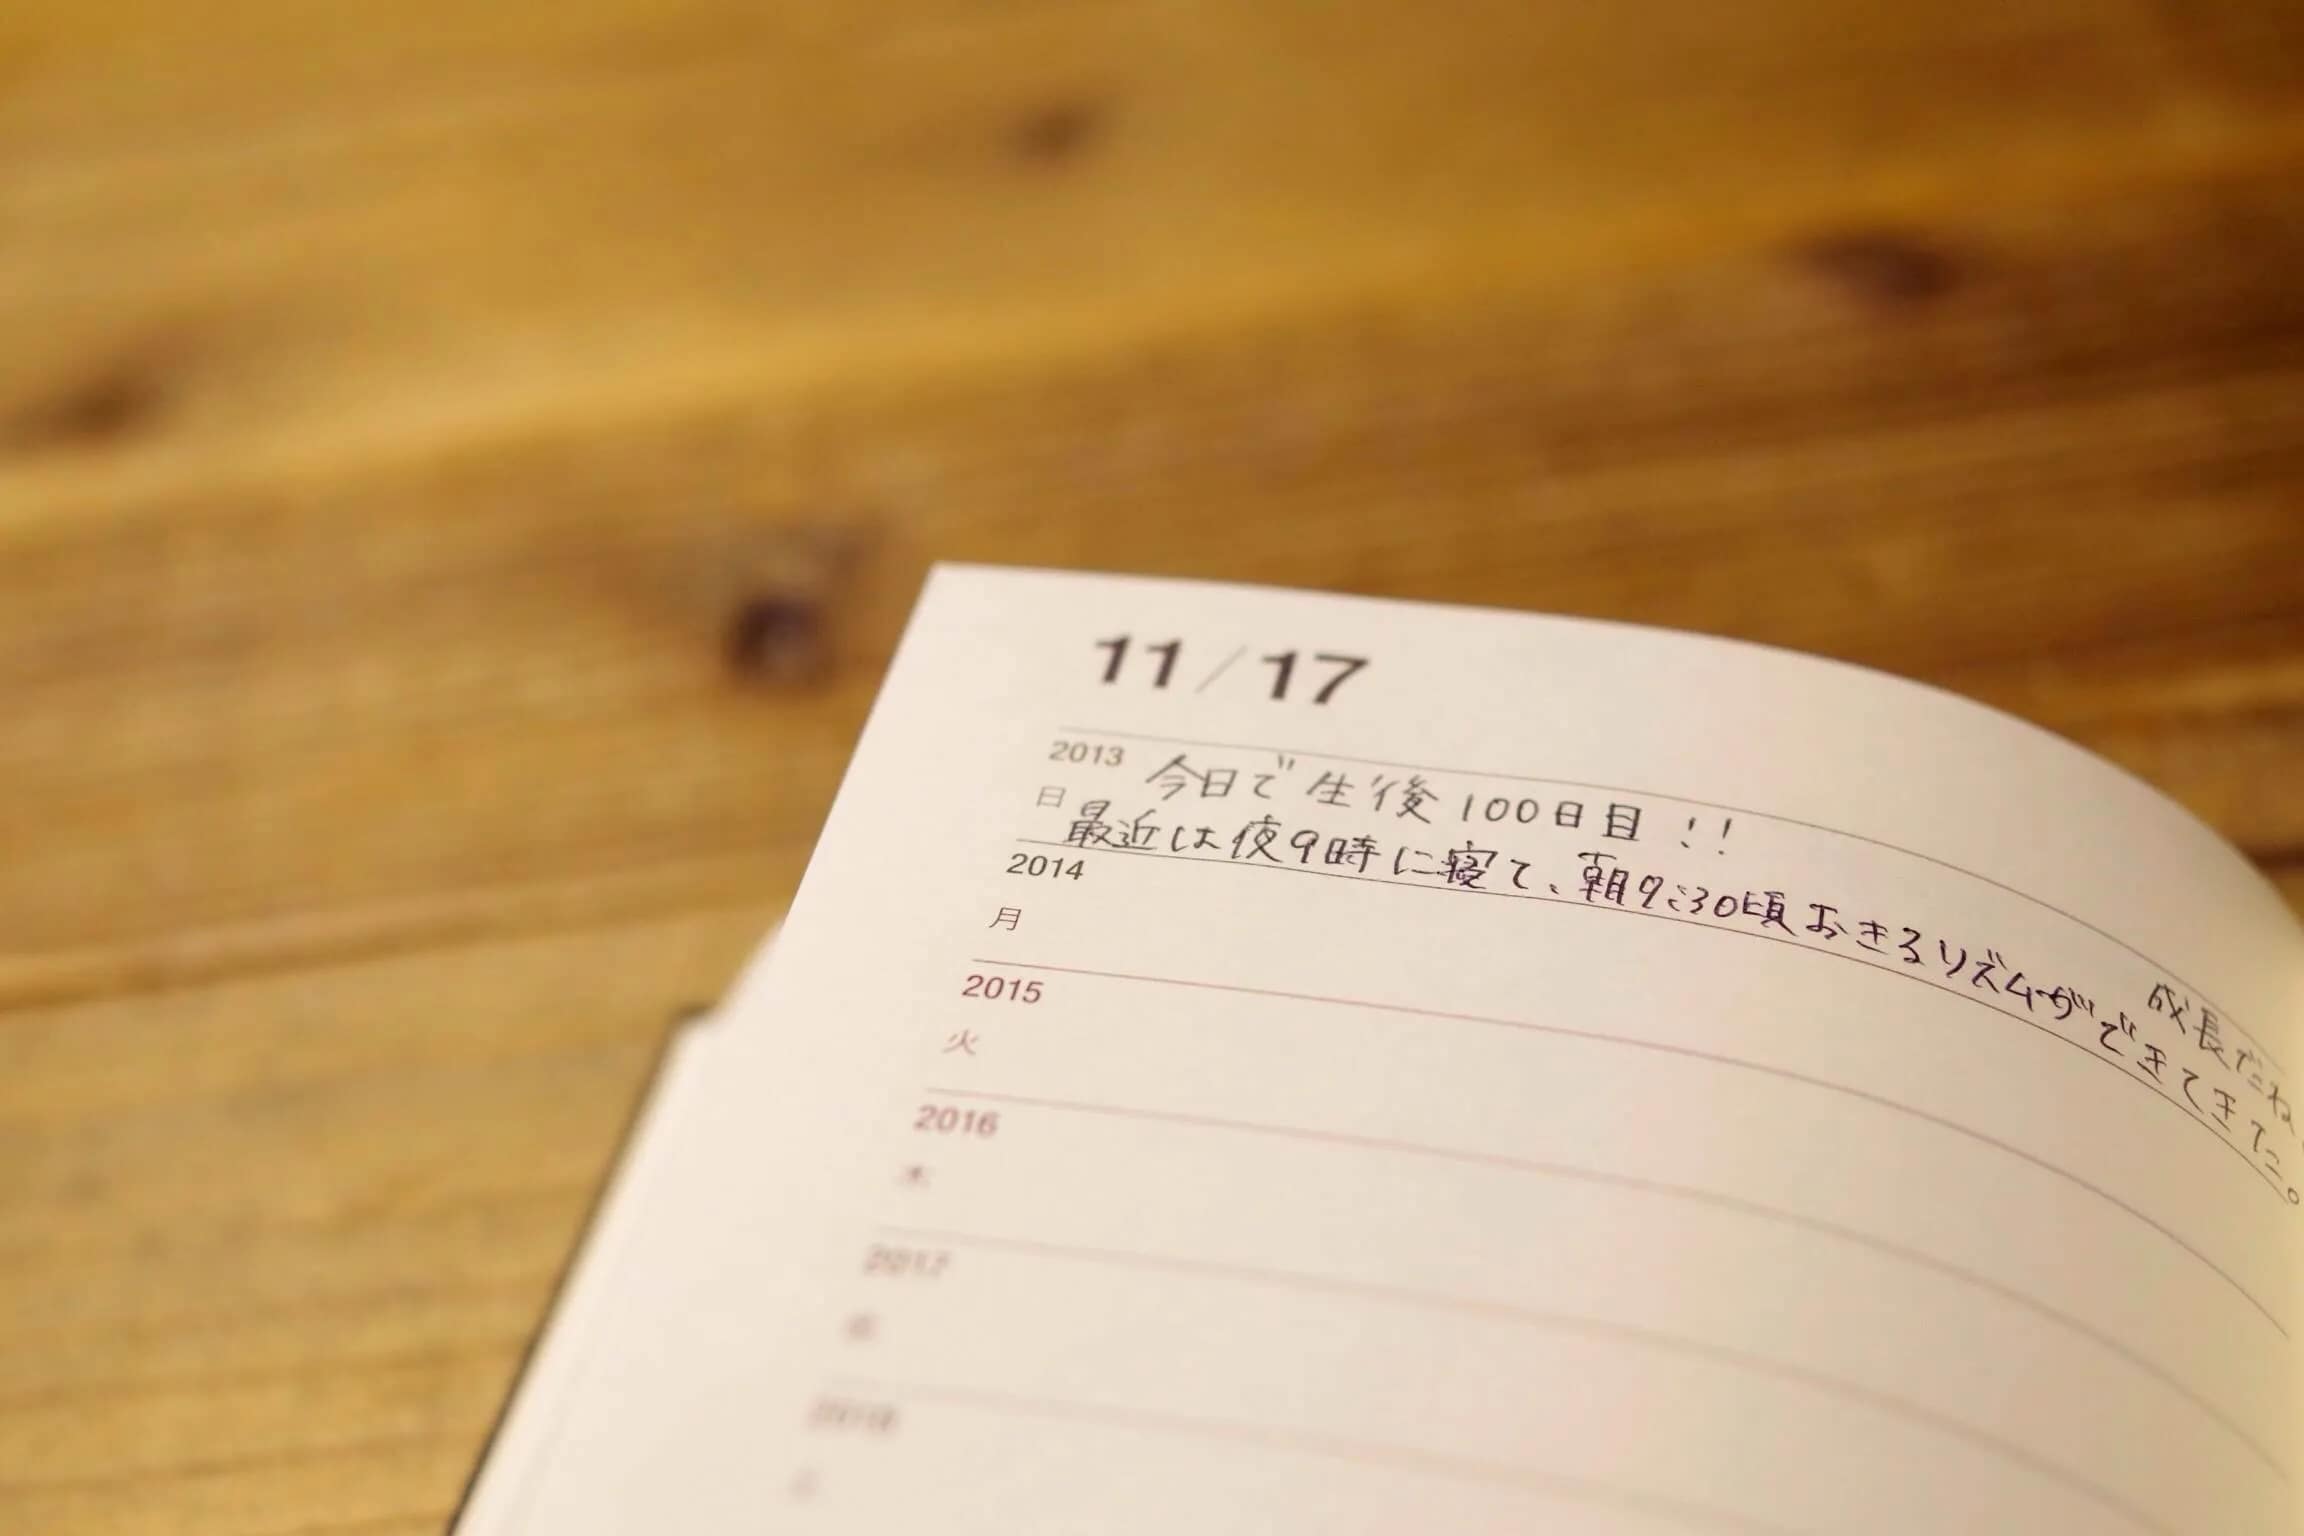 11/17
2013 今日で生後100日目!!
日 最近は夜9時に寝て、朝9:30頃おきるリズムができてきた。
成長だね
2014
月
2015
火
2016
木
2017
2018